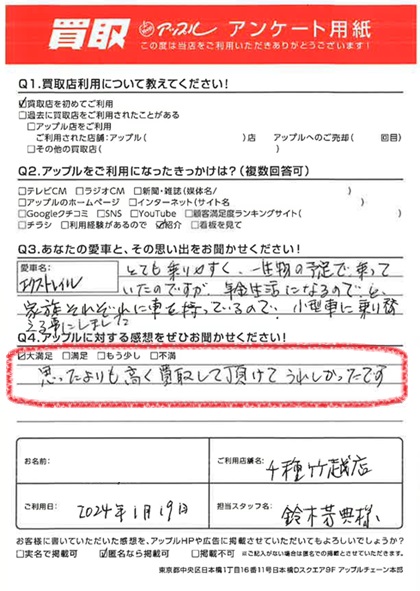 買取 アップル アンケート用紙
この度は当店をご利用いただきありがとうございます！
Q1.買取店利用について教えてください！
☑買取店を初めてご利用
□過去に買取店をご利用されたことがある
□アップル店をご利用
ご利用された店舗：アップル（　　）店　アップルへのご売却（　　回目）
□その他の買取店（　　）
Q2.アップルをご利用になったきっかけは？（複数回答可）
□テレビCM □ラジオCM □新聞・雑誌（媒体名/　　）
□アップルのホームページ □インターネット（サイト名　　）
□Googleクチコミ □SNS □YouTube □顧客満足度ランキングサイト（　　）
□チラシ □利用経験があるので ☑紹介 □看板を見て
Q3.あなたの愛車と、その思い出をお聞かせください！
愛車名：
エクストレイル
とても乗りやすく、一生物の予定で乗って
いたのですが、年金生活になるので、
家族それぞれに車を持っているので、小型車に乗り替
える事にしました
Q4.アップルに対する感想をぜひお聞かせください！
☑大満足 □満足 □もう少し □不満
思ったよりも高く買取して頂けてうれしかったです
お名前：
ご利用店舗名：
千種竹越店
ご利用日：
2024年1月19日
担当スタッフ名：
鈴木芳典様
お客様に書いていただいた感想を、アップルHPや広告に掲載させていただいてもよろしいでしょうか？
□実名で掲載可 ☑匿名なら掲載可 □掲載不可 ※ご記入がない場合は匿名での掲載とさせていただきます。
東京都中央区日本橋1丁目16番11号日本橋Dスクエア9F アップルチェーン本部